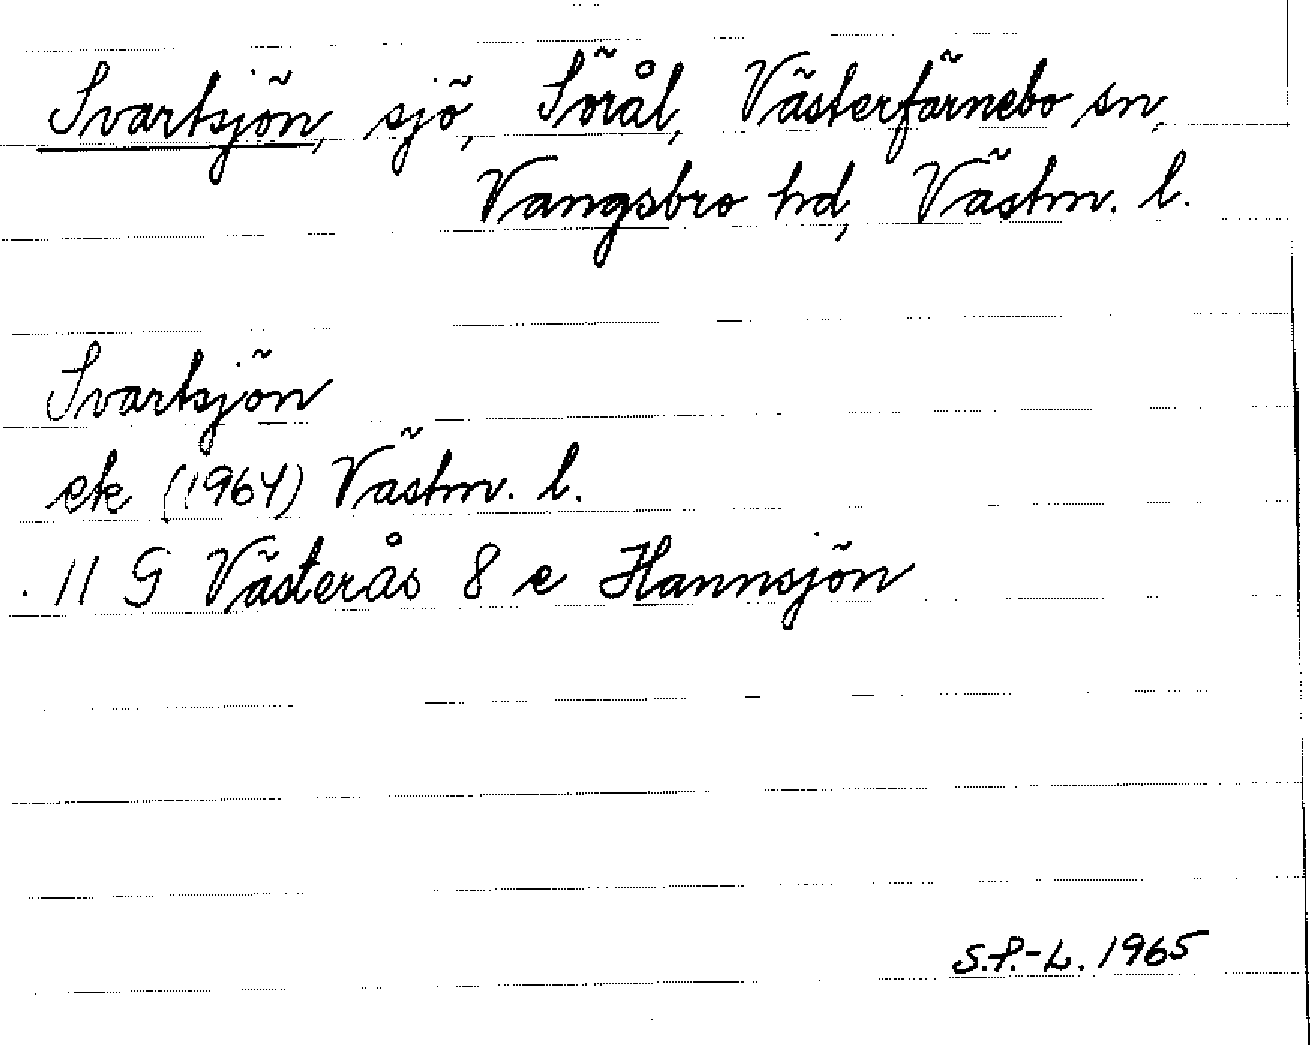 Svartsjön, sjö, Sörål, Västerfärnebo sn,
Vangsbro hd, Västm. l.
Svartsjön
ek (1964) Västm. l.
11 G Västerås 8 e Hannsjön
S.P.-L. 1965